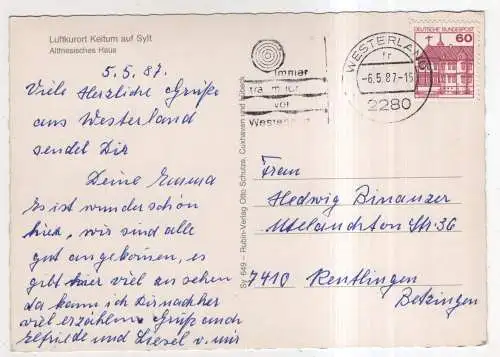 Luftkurort Keitum auf Sylt
Altfriesisches Haus
5.5.87.
Viele Herzliche Grüße
aus Westerland
sendet Dir
Deine Emma
Es ist wunderschön
hier, wir sind alle
gut angekommen, es
gibt hier viel zu sehen
da kann ich Dir nachher
viel erzählen Grüß auch
Elfriede und Liesel v. mir
Sy 649 – Rubin-Verlag Otto Schutze, Cuxhaven und Lübeck
Immer
vor
Westerland
WESTERLAND
-6.5.87-15
2280
DEUTSCHE BUNDESPOST
60
Frau
Hedwig Binanzer
Str. 36
7410 Reutlingen
Betzingen